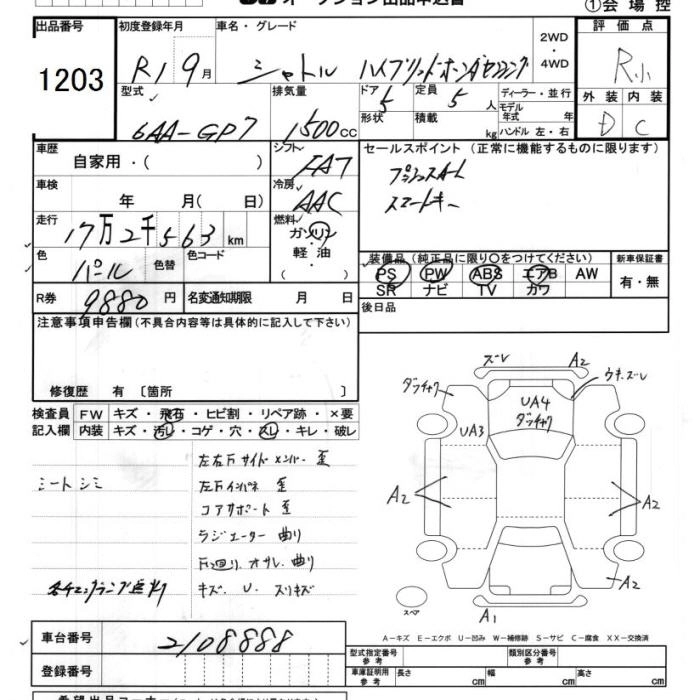 オークション出品申込書 ①会場控
出品番号 初度登録年月 車名・グレード 2WD・4WD 評価点
1203 R1 9月 シャトル ハイブリッドホンダセンシング R小
型式 排気量 ドア 定員 ディーラー・並行 外装 内装
6AA-GP7 1500cc 5 5人 モデル年式 年 D C
形状 積載 kg ハンドル 左・右
車歴 シフト セールスポイント(正常に機能するものに限ります)
自家用・( ) FA7 プッシュスタート
車検 冷房 スマートキー
年 月(日) AAC
走行 燃料
17万2千563km ガソリン・軽油
色 色替 色コード 装備品(純正品に限り○をつけてください) 新車保証書
パール PS PW ABS エアB AW 有・無
R券 9880円 名変通知期限 月 日 SR ナビ TV カワ
注意事項申告欄(不具合内容等は具体的に記入して下さい) 後日品
修復歴 有 〔箇所 〕
検査員 FW キズ・飛石・ヒビ割・リペア跡・×要
記入欄 内装 キズ・汚レ・コゲ・穴・スレ・キレ・破レ
ズレ A2
ダッチャク ウキ、ズレ
UA4
ダッチャク
UA3
A2 A2
A2
スペア A1
左右下サイドメンバー 歪
シートシミ 左下インパネ 歪
コアサポート 歪
ラジエーター 曲り
下廻り、オサレ、曲り
キズ、U、スリキズ
車台番号 2108888
A-キズ E-エクボ U-凹み W-補修跡 S-サビ C-腐食 XX-交換済
登録番号
型式指定番号 参考 類別区分番号 参考
車庫証明用 参考 長さ cm 幅 cm 高さ cm